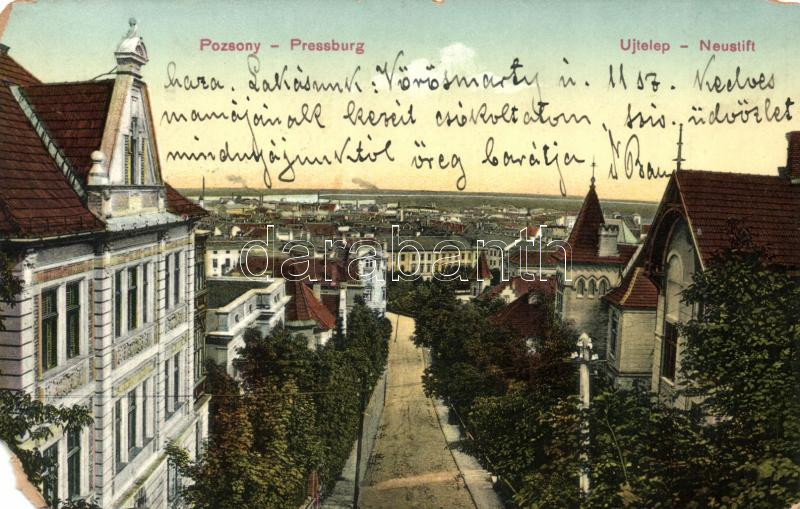 Pozsony - Pressburg
Ujtelep - Neustift
haza. Lakásunk: Vörösmarty u. 11 sz. Kedves
mamájának kezeit csókoltatom, Isis üdvözlet
mindnyájunktól öreg barátja
darabanth